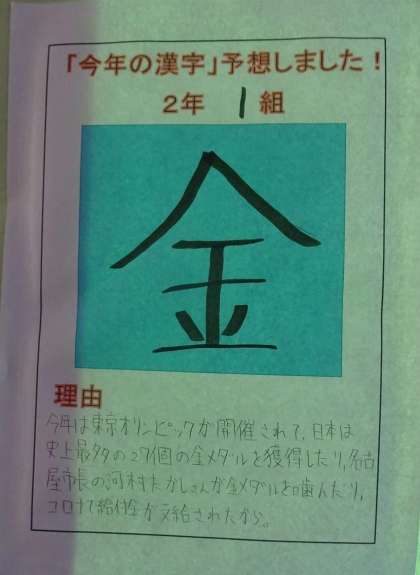 「今年の漢字」予想しました！
2年 1 組
金
理由
今年は東京オリンピックが開催されて、日本は
史上最多の27個の金メダルを獲得したり、名古
屋市長の河村たかしさんが金メダルを噛んだり、
コロナで給付金が支給されたから。